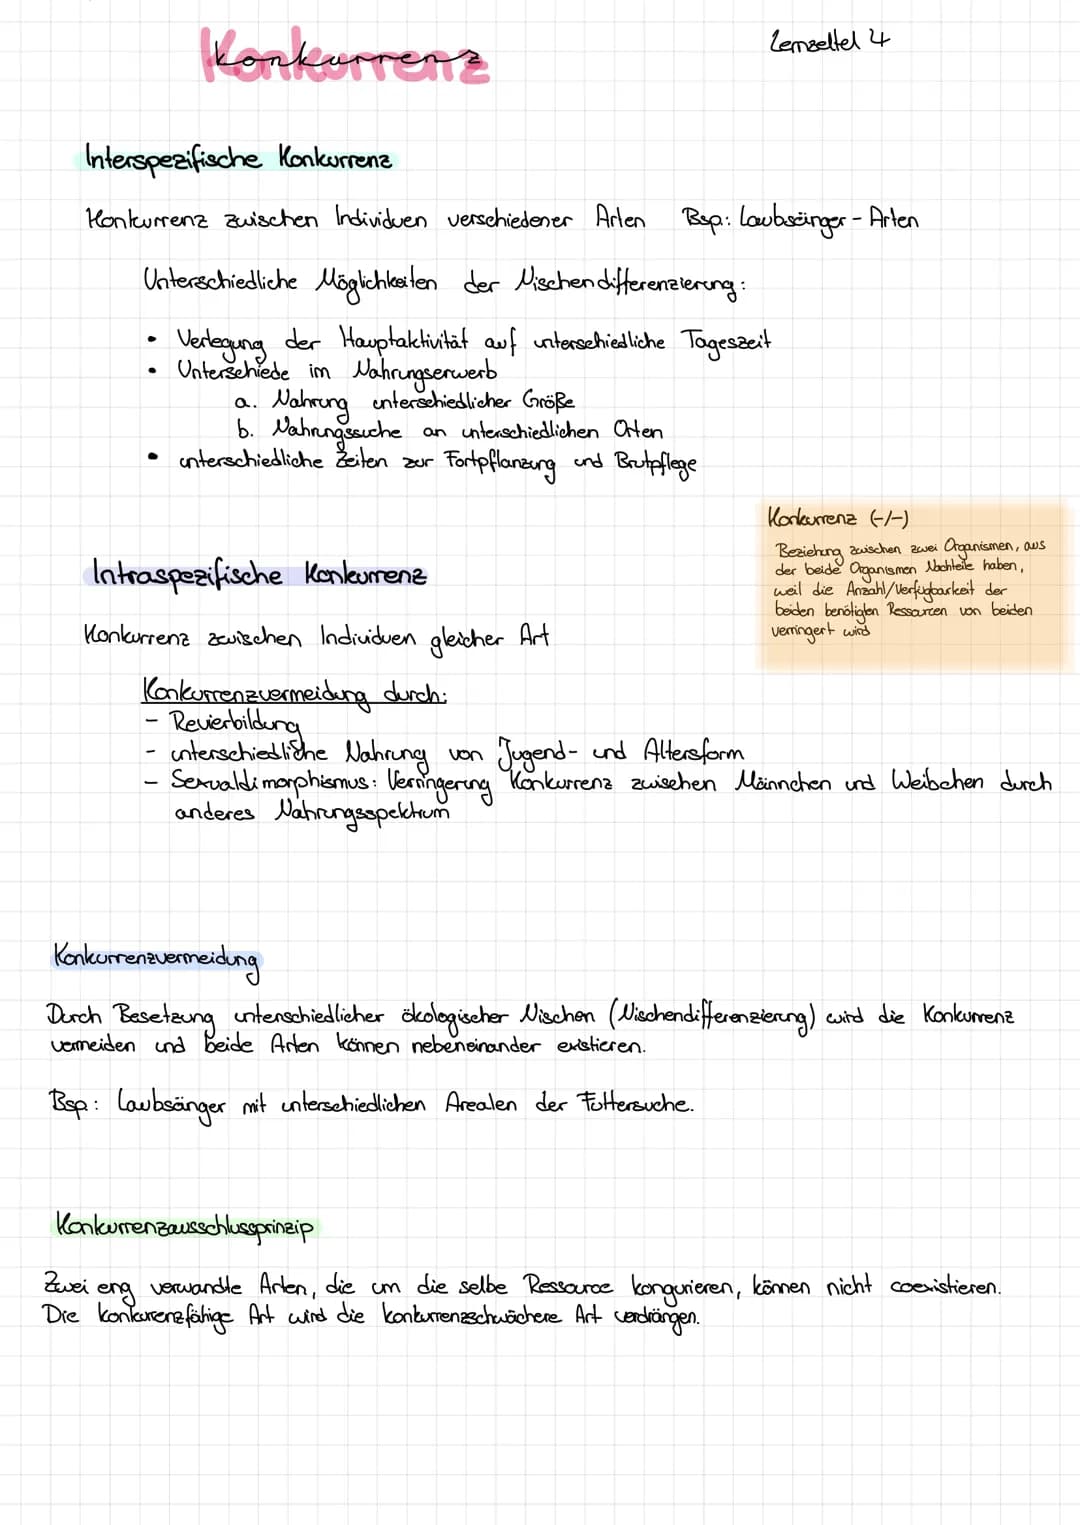 Konkurrenz
Lernzettel 4
Interspezifische Konkurrenz
Konkurrenz zwischen Individuen verschiedener Arten Bsp: Laubsänger-Arten
Unterschiedliche Möglichkeiten der Nischendifferenzierung:
• Verlegung der Hauptaktivität auf unterschiedliche Tageszeit
• Unterschiede im Nahrungserwerb
a. Nahrung unterschiedlicher Größe
b. Nahrungssuche an unterschiedlichen Orten
• unterschiedliche Zeiten zur Fortpflanzung und Brutpflege
Konkurrenz (-/-)
Beziehung zwischen zwei Organismen, aus
der beide Organismen Nachteile haben,
weil die Anzahl/Verfügbarkeit der
beiden benötigten Ressourcen von beiden
verringert wird
Intraspezifische Konkurrenz
Konkurrenz zwischen Individuen gleicher Art
Konkurrenzvermeidung durch:
- Revierbildung
- unterschiedliche Nahrung von Jugend- und Altersform
- Sexualdimorphismus: Verringerung Konkurrenz zwischen Männchen und Weibchen durch
anderes Nahrungsspektrum
Konkurrenzvermeidung
Durch Besetzung unterschiedlicher ökologischer Nischen (Nischendifferenzierung) wird die Konkurrenz
vermeiden und beide Arten können nebeneinander existieren.
Bsp: Laubsänger mit unterschiedlichen Arealen der Futtersuche.
Konkurrenzausschlussprinzip
Zwei eng verwandte Arten, die um die selbe Ressource kongurieren, können nicht coexistieren.
Die konkurenzfähige Art wird die konkurrenzschwächere Art verdrängen.